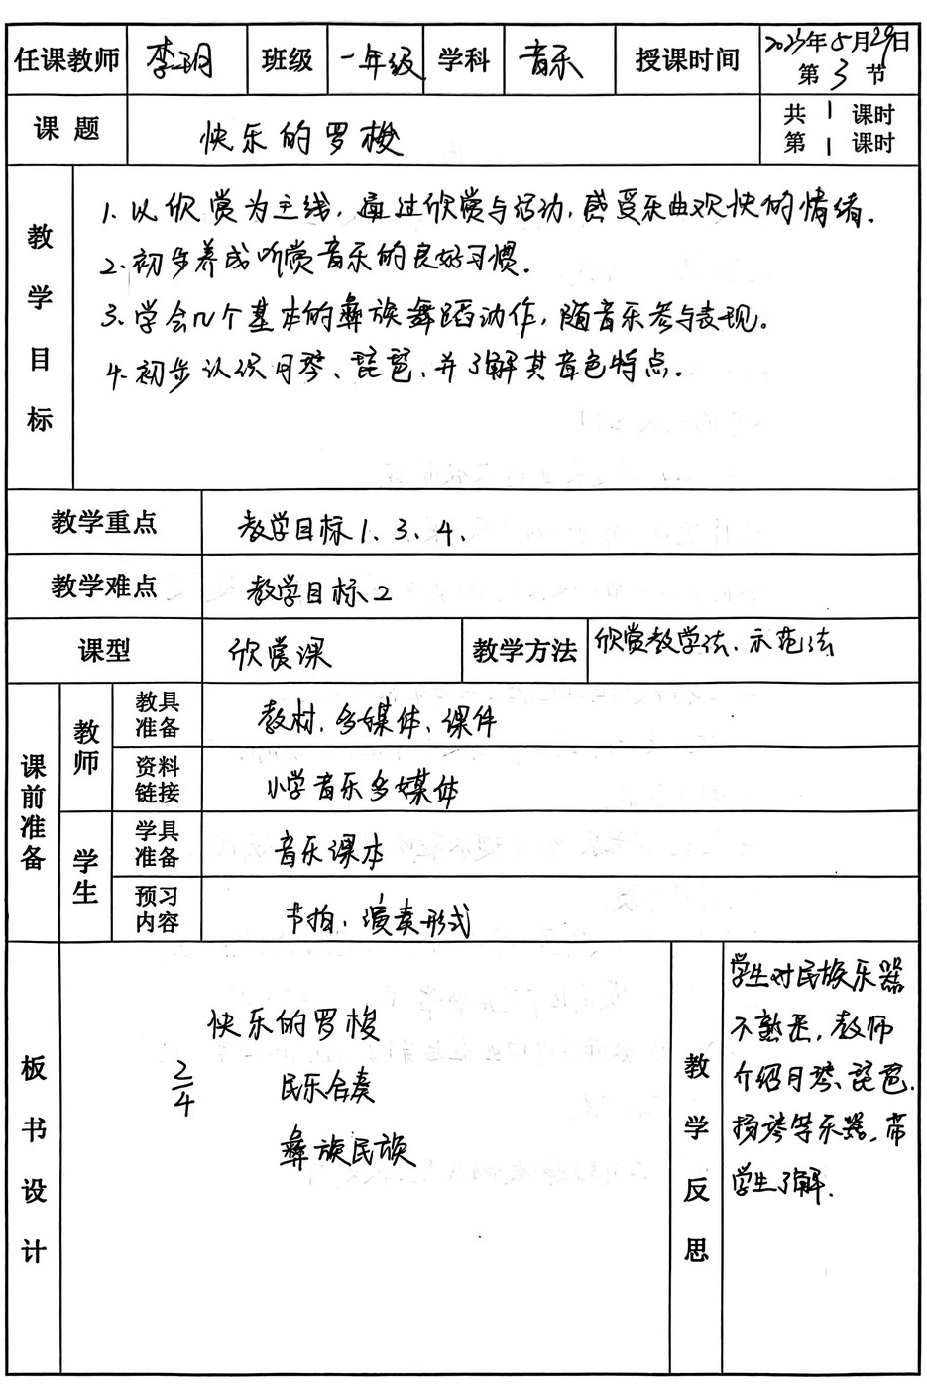 任课教师 李玥 班级 一年级 学科 音乐 授课时间 2023年5月29日
第3节
课题 快乐的罗梭 共1课时
第1课时
教学目标
1.以欣赏为主线,通过欣赏与活动,感受乐曲欢快的情绪.
2.初步养成听赏音乐的良好习惯.
3.学会几个基本的彝族舞蹈动作,随音乐参与表现。
4.初步认识月琴、琵琶,并了解其音色特点.
教学重点 教学目标1、3、4、
教学难点 教学目标2
课型 欣赏课 教学方法 欣赏教学法、示范法
课前准备
教师
教具准备 教材、多媒体、课件
资料链接 小学音乐多媒体
学生
学具准备 音乐课本
预习内容 节拍、演奏形式
板书设计
快乐的罗梭
2/4 民乐合奏
彝族民族
教学反思
学生对民族乐器
不熟悉,教师
介绍月琴、琵琶.
扬琴等乐器,带
学生了解.